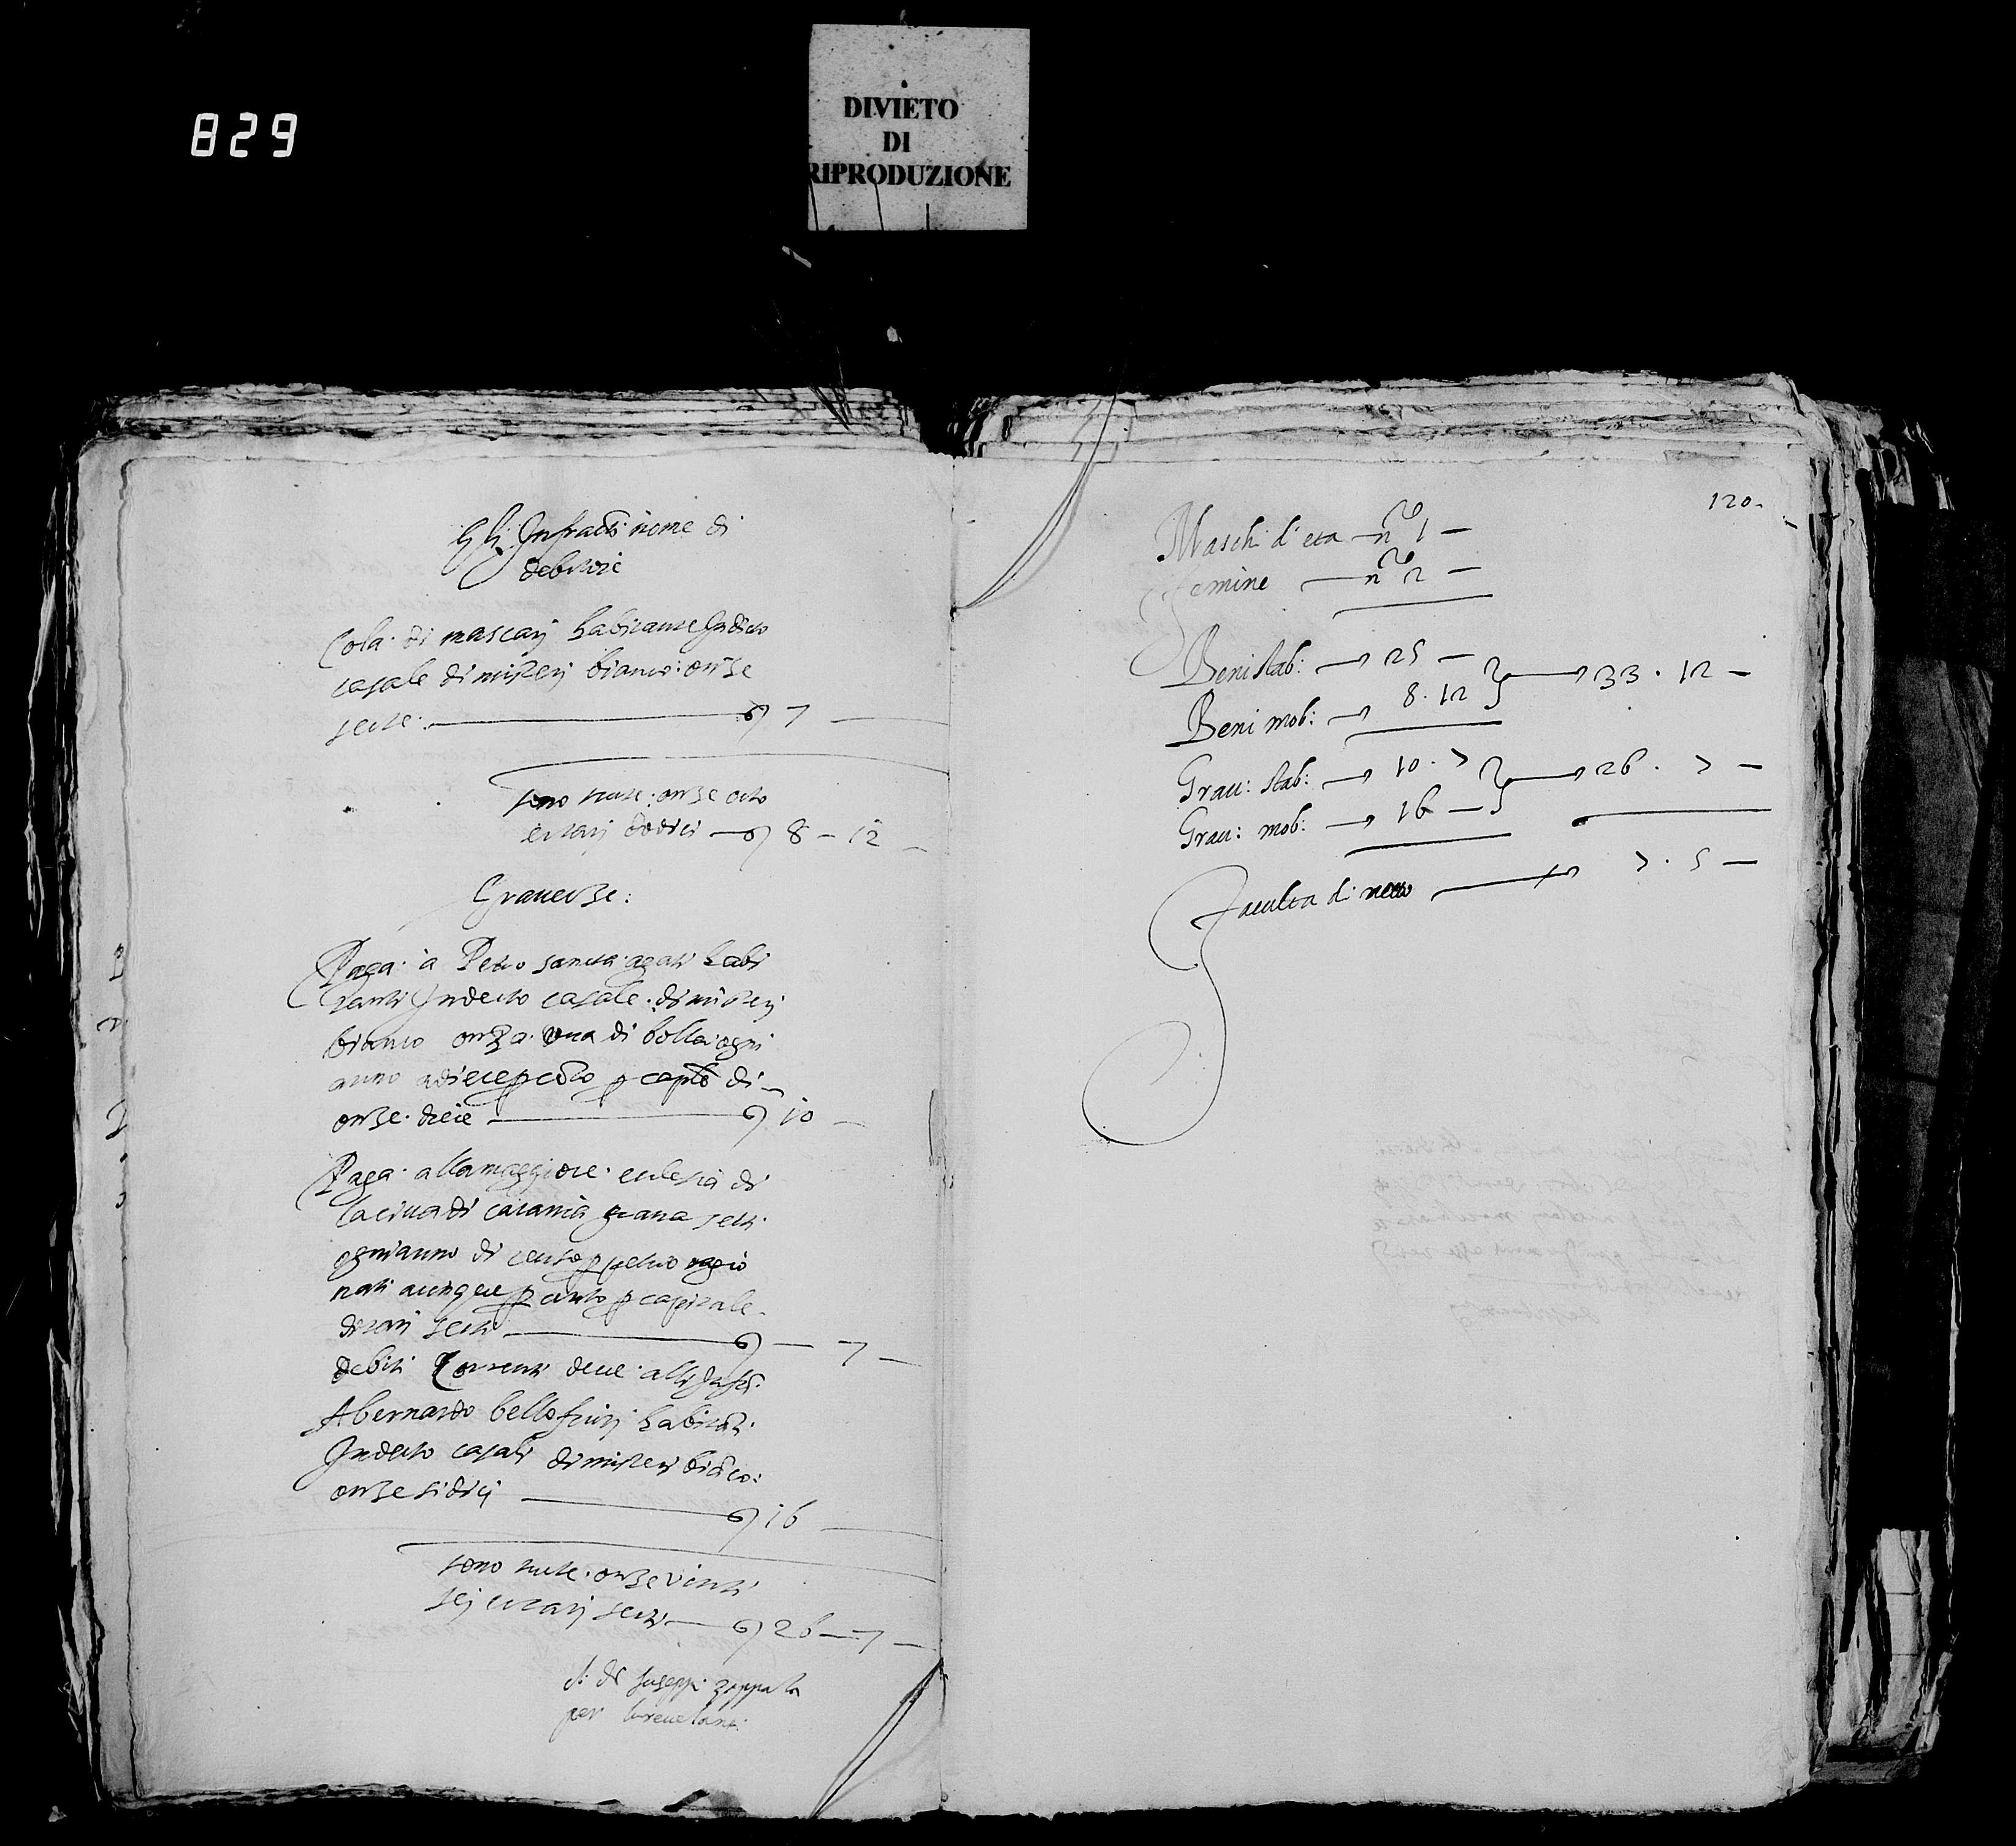 829
DIVIETO
DI
RIPRODUZIONE
Gli Infracti nome di
debitori
Cola di mascari habitante Indicto
casale di misteri bianco: onze
secte 7 —
sono tucte: onze octo
e tarij dodici 8 – 12 –
Graveize:
Paga à Petro sancta agati habi
tanti Indecto casale di misterj
bianco onza una di bolla ogni
anno a diece per cento per capitale di
onze diece 10 –
Paga alla maggiore eclesia di
la citta di catania grana setti
ogni anno di censo perpetuo ragio
nati a cinque per cento per capitale
di tarij secti — 7 –
debiti Correnti deve alli Infri.
A bernardo bellofiuri habitati
Indecto casali di misteri bianco:
onze sidici 16 —
sono tucte onze vinti
sej e tarij secti 26 — 7 –
di Iuseppi zappala
per lu revelanti
120.
Maschi d'eta — n.ro 1 —
Femine — n.ro 2 —
Beni stab: 25 —
33 . 12 —
Beni mob: 8 . 12
Grav: stab: 10 . 7
26 . 7 —
Grav: mob: 16 —
Faculta di netto 7 . 5 —